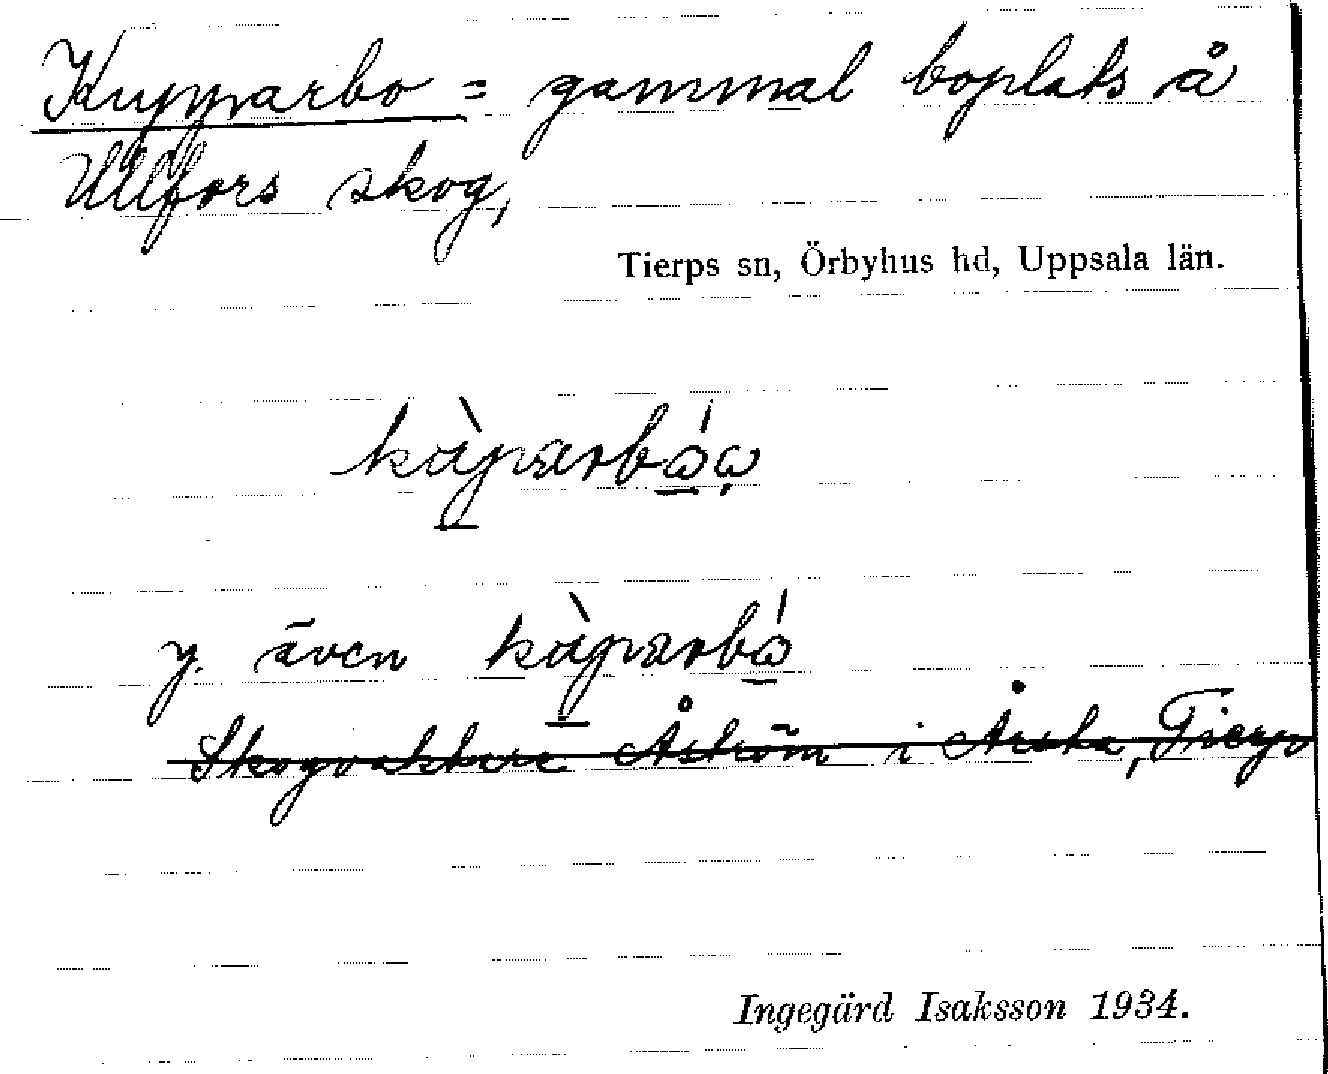 Kupparbo = gammal boplats å
Ullfors skog,
Tierps sn, Örbyhus hd, Uppsala län.
y. även
Skogvaktare Åström i Årsta, Tierp
Ingegärd Isaksson 1934.